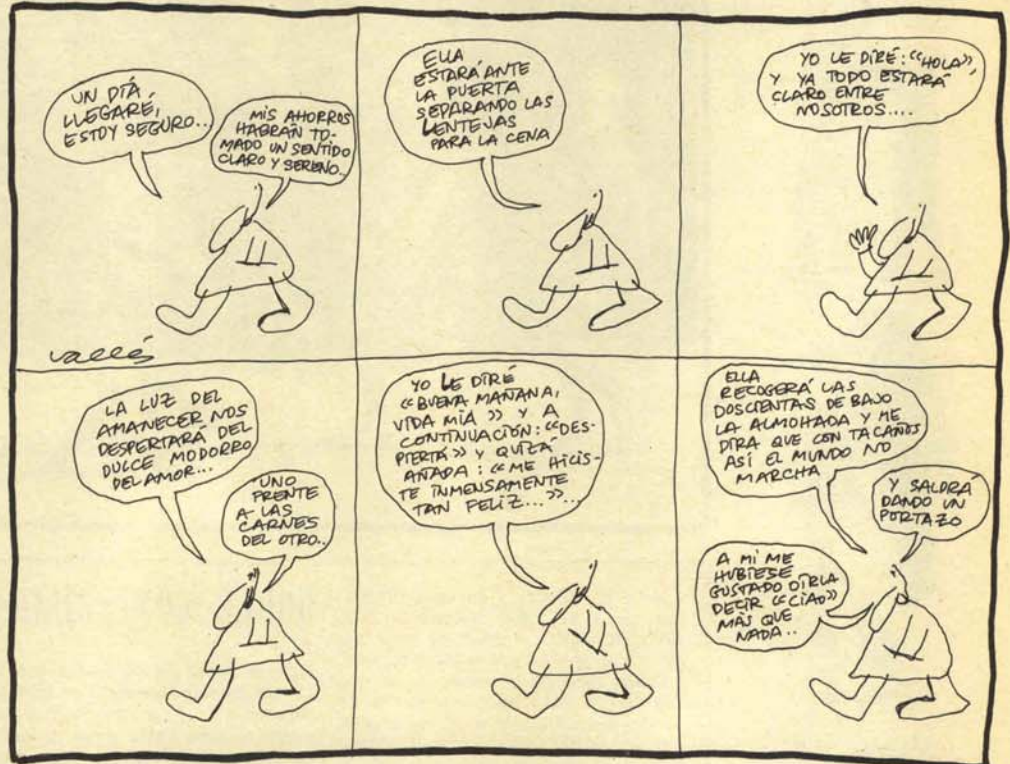 UN DÍA
LLEGARÉ,
ESTOY SEGURO...
MIS AHORROS
HABRÁN TO-
MADO UN SENTIDO
CLARO Y SERENO..
ELLA
ESTARÁ ANTE
LA PUERTA
SEPARANDO LAS
LENTEJAS
PARA LA CENA
YO LE DIRÉ: «HOLA»,
Y YA TODO ESTARÁ
CLARO ENTRE
NOSOTROS....
vallés
LA LUZ DEL
AMANECER NOS
DESPERTARÁ DEL
DULCE MODORRO
DEL AMOR...
UNO
FRENTE
A LAS
CARNES
DEL OTRO..
YO LE DIRÉ
«BUENA MAÑANA,
VIDA MÍA» Y A
CONTINUACIÓN: «DES-
PIERTA» Y QUIZÁ
AÑADA: «ME HICIS-
TE INMENSAMENTE
TAN FELIZ...»...
ELLA
RECOGERÁ LAS
DOSCIENTAS DE BAJO
LA ALMOHADA Y ME
DIRA QUE CON TACAÑOS
ASÍ EL MUNDO NO
MARCHA
Y SALDRA
DANDO UN
PORTAZO
A MI ME
HUBIESE
GUSTADO OIRLA
DECIR «CIAO»
MÁS QUE
NADA..